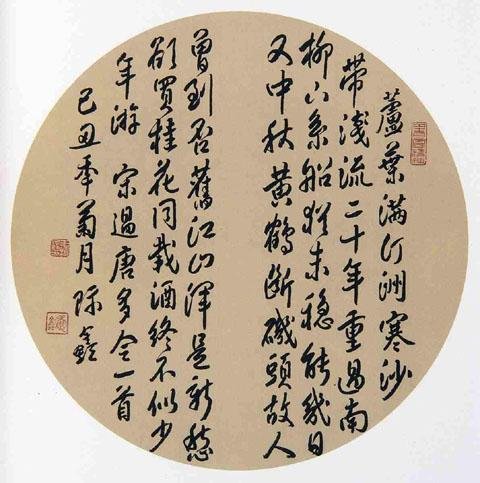 蘆葉滿汀洲寒沙
带淺流二十年重過南
柳下系船猶未穩能幾日
又中秋黄鶴斷磯頭故人
曾到否舊江山渾是新愁
欲買桂花同載酒終不似少
年游 宋過唐多令一首
己丑秊菊月